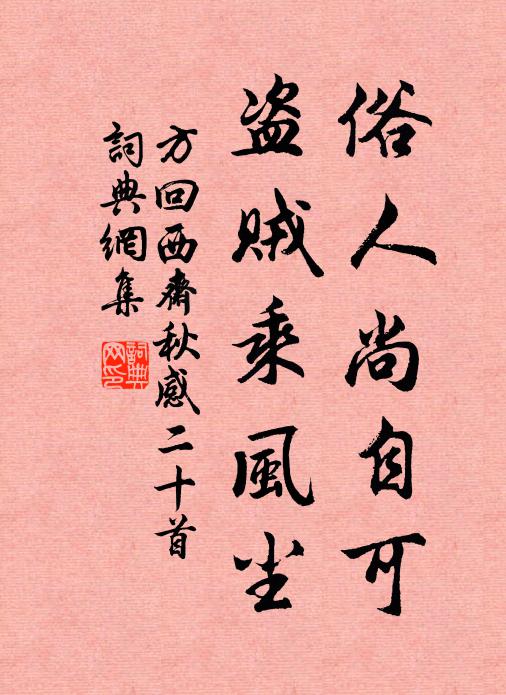 俗人尚自可
盗賊乘風尘
方回西齋秋感二十首
詞典網集
詞典网印